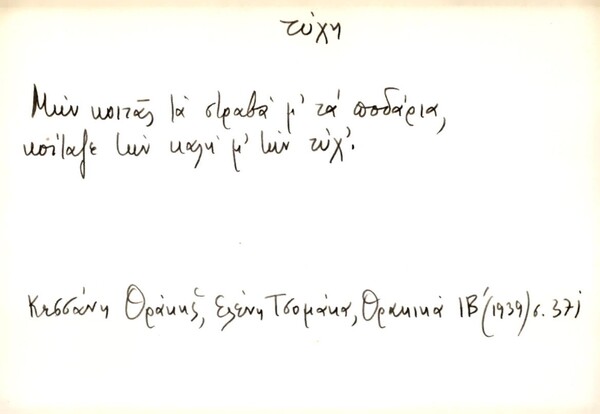 τύχη
Μὴν κοιτᾷς τὰ στραβά μ' τὰ ποδάρια,
κοίταξε τὴν καλή μ' τὴν τύχ'.
Κεσσάνη Θρᾴκης, Ελένη Τσομάκα, Θρακικά ΙΒ' (1939) σ. 37